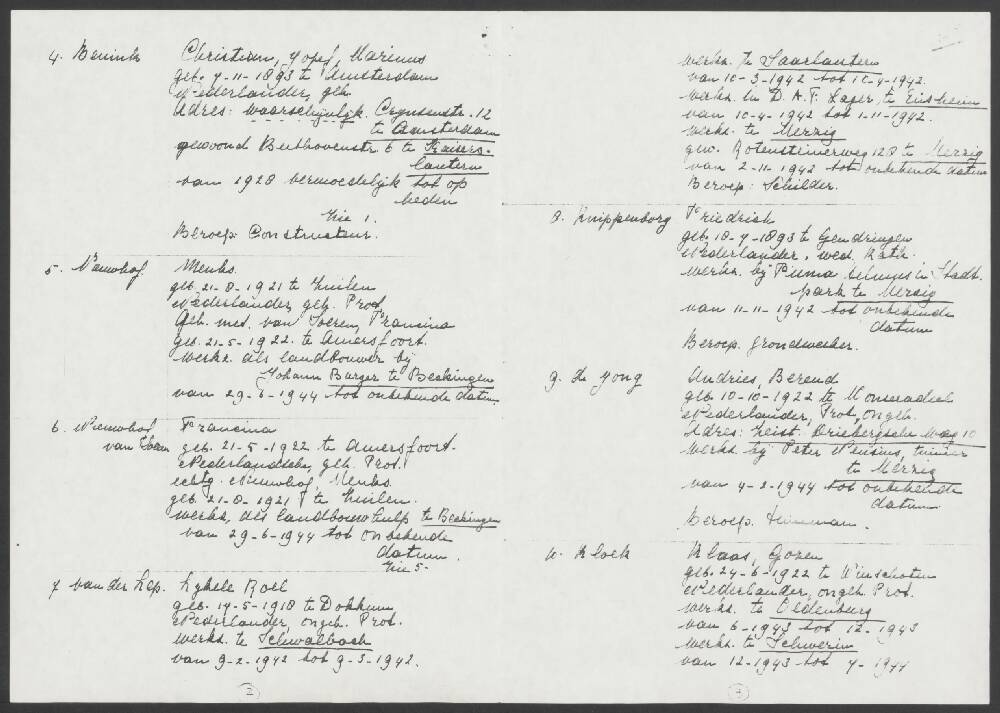 4. Benink Christiaan, Josef, Marinus
geb. 7-11-1893 te Amsterdam
Nederlander, geh.
Adres: waarschijnlijk. Crynssenstr. 12
te Amsterdam
gewoond Bethovenstr 6 te Kaisers-
lautern
van 1928 vermoedelijk tot op
heden
Zie 1.
Beroep: Constructeur.
5. Nieuwhof. Menko.
geb. 21-8-1921 te Zuilen
Nederlander, geh. Prot.
Geh. met. van Soeren, Francina
geb. 21-5-1922. te Amersfoort.
werkz. als landbouwer bij
Johann Burger te Beckingen
van 29-6-1944 tot onbekende datum.
6. Nieuwhof Francina
van Soeren geb. 21-5-1922 te Amersfoort.
Nederlandsche, geh. Prot.
echtg. Nieuwhof, Menko.
geb. 21-8-1921 te Zuilen.
werkz. als landbouwhulp te Beckingen
van 29-6-1944 tot onbekende
datum.
Zie 5.
7 van der Lep. Lykele Roel
geb. 14-5-1918 te Dokkum
Nederlander, ongeh. Prot.
werkz. te Schwalbach
van 9-2-1942 tot 9-3-1942.
2
werkz. te Saarlautern
van 10-3-1942 tot 10-4-1942.
werkz. in D.A.F. Lager, te Ensheim
van 10-4-1942 tot 1-11-1942.
werkz. te Merzig
gew. Rotensteinerweg 128 te Merzig
van 2-11-1942 tot onbekende datum
Beroep: Schilder.
8. Knippenborg Friedrich
geb. 18-7-1893 te Gendringen
Nederlander, wed. Kath.
werkz. bij Puma in Stadt.
park te Merzig
van 11-11-1942 tot onbekende
datum
Beroep. grondwerker.
9. de Jong Andries, Berend
geb. 10-10-1922 te
Nederlander, Prot, ongeh.
Adres: Zeist. Driebergsche weg 10
werkz. bij Peter tuinier
te Merzig
van 4-2-1944 tot onbekende
datum
Beroep.
10. Kloek Klaas, Gozen
geb. 24-6-1922 te Winschoten
Nederlander, ongeh. Prot.
werkz. te Oldenburg
van 6-1943 tot 12-1943
werkz. te Schwerin
van 12-1943 tot 7-1944
3